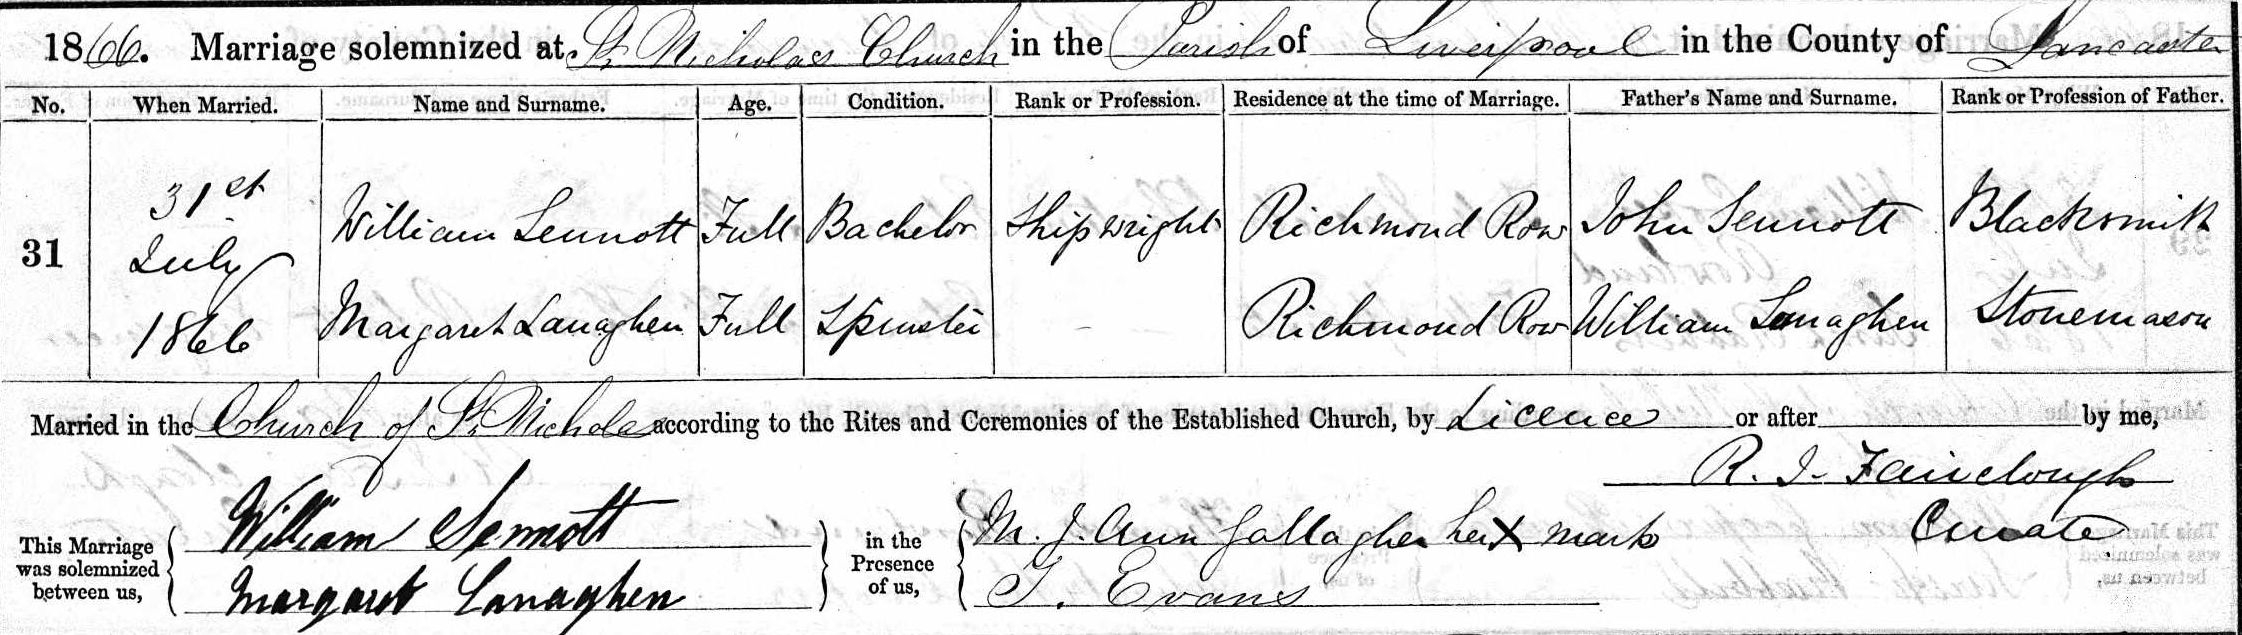 1866. Marriage solemnized at St Nicholas Church in the Parish of Liverpool in the County of Lancaster
No. When Married. Name and Surname. Age. Condition. Rank or Profession. Residence at the time of Marriage. Father's Name and Surname. Rank or Profession of Father.
31 31st July 1866 William Sennott Full Bachelor Shipwright Richmond Row John Sennott Blacksmith
Margaret Lanaghen Full Spinster - Richmond Row William Lanaghen Stonemason
Married in the Church of St Nichola according to the Rites and Ceremonies of the Established Church, by Licence or after by me,
R. J. Fairclough
Curate
This Marriage was solemnized between us, William Sennott in the Presence of us, M. J. Ann Gallagher her X mark
Margaret Lanaghen T. Evans